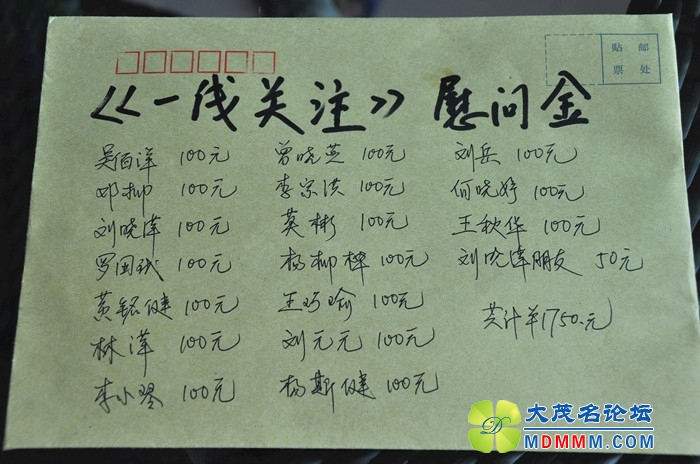 贴 邮
票 处
《一线关注》慰问金
吴百洋 100元 曾晓芝 100元 刘兵 100元
邓柳 100元 李宗洪 100元 何晓婷 100元
刘晓湋 100元 莫彬 100元 王秋华 100元
罗国斌 100元 杨柳桦 100元 刘晓湋朋友 50元
黄铭健 100元 王巧瑜 100元
林泽 100元 刘元元 100元 共计¥1750.元
李小琴 100元 杨斯健 100元
大茂名论坛
MDMMM.COM